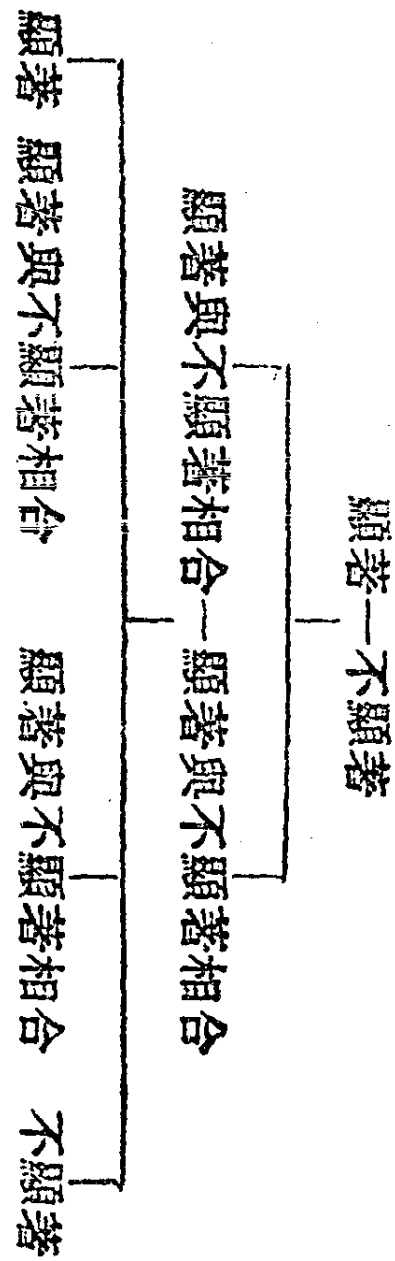 顯著—不顯著
顯著與不顯著相合—顯著與不顯著相合
顯著 顯著與不顯著相合 顯著與不顯著相合 不顯著